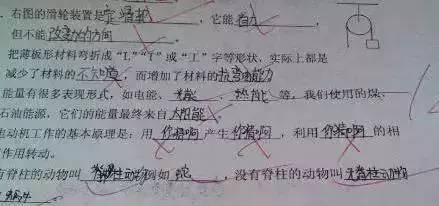 右图的滑轮装置是定滑轮,它能省力,
但不能改变力的方向
把薄板形材料弯折成“L”“T”或“工”字等形状,实际上都是
减少了材料的不知道,而增加了材料的抗弯曲能力
能量有很多表现形式,如电能、光能、热能等,我们使用的煤、
石油能源,它们的能量最终来自太阳能。
电动机工作的基本原理是:用你猜啊产生你猜啊,利用你猜啊的相
作用转动。
有脊柱的动物叫脊柱动物例如蛇,没有脊柱的动物叫无脊柱动物